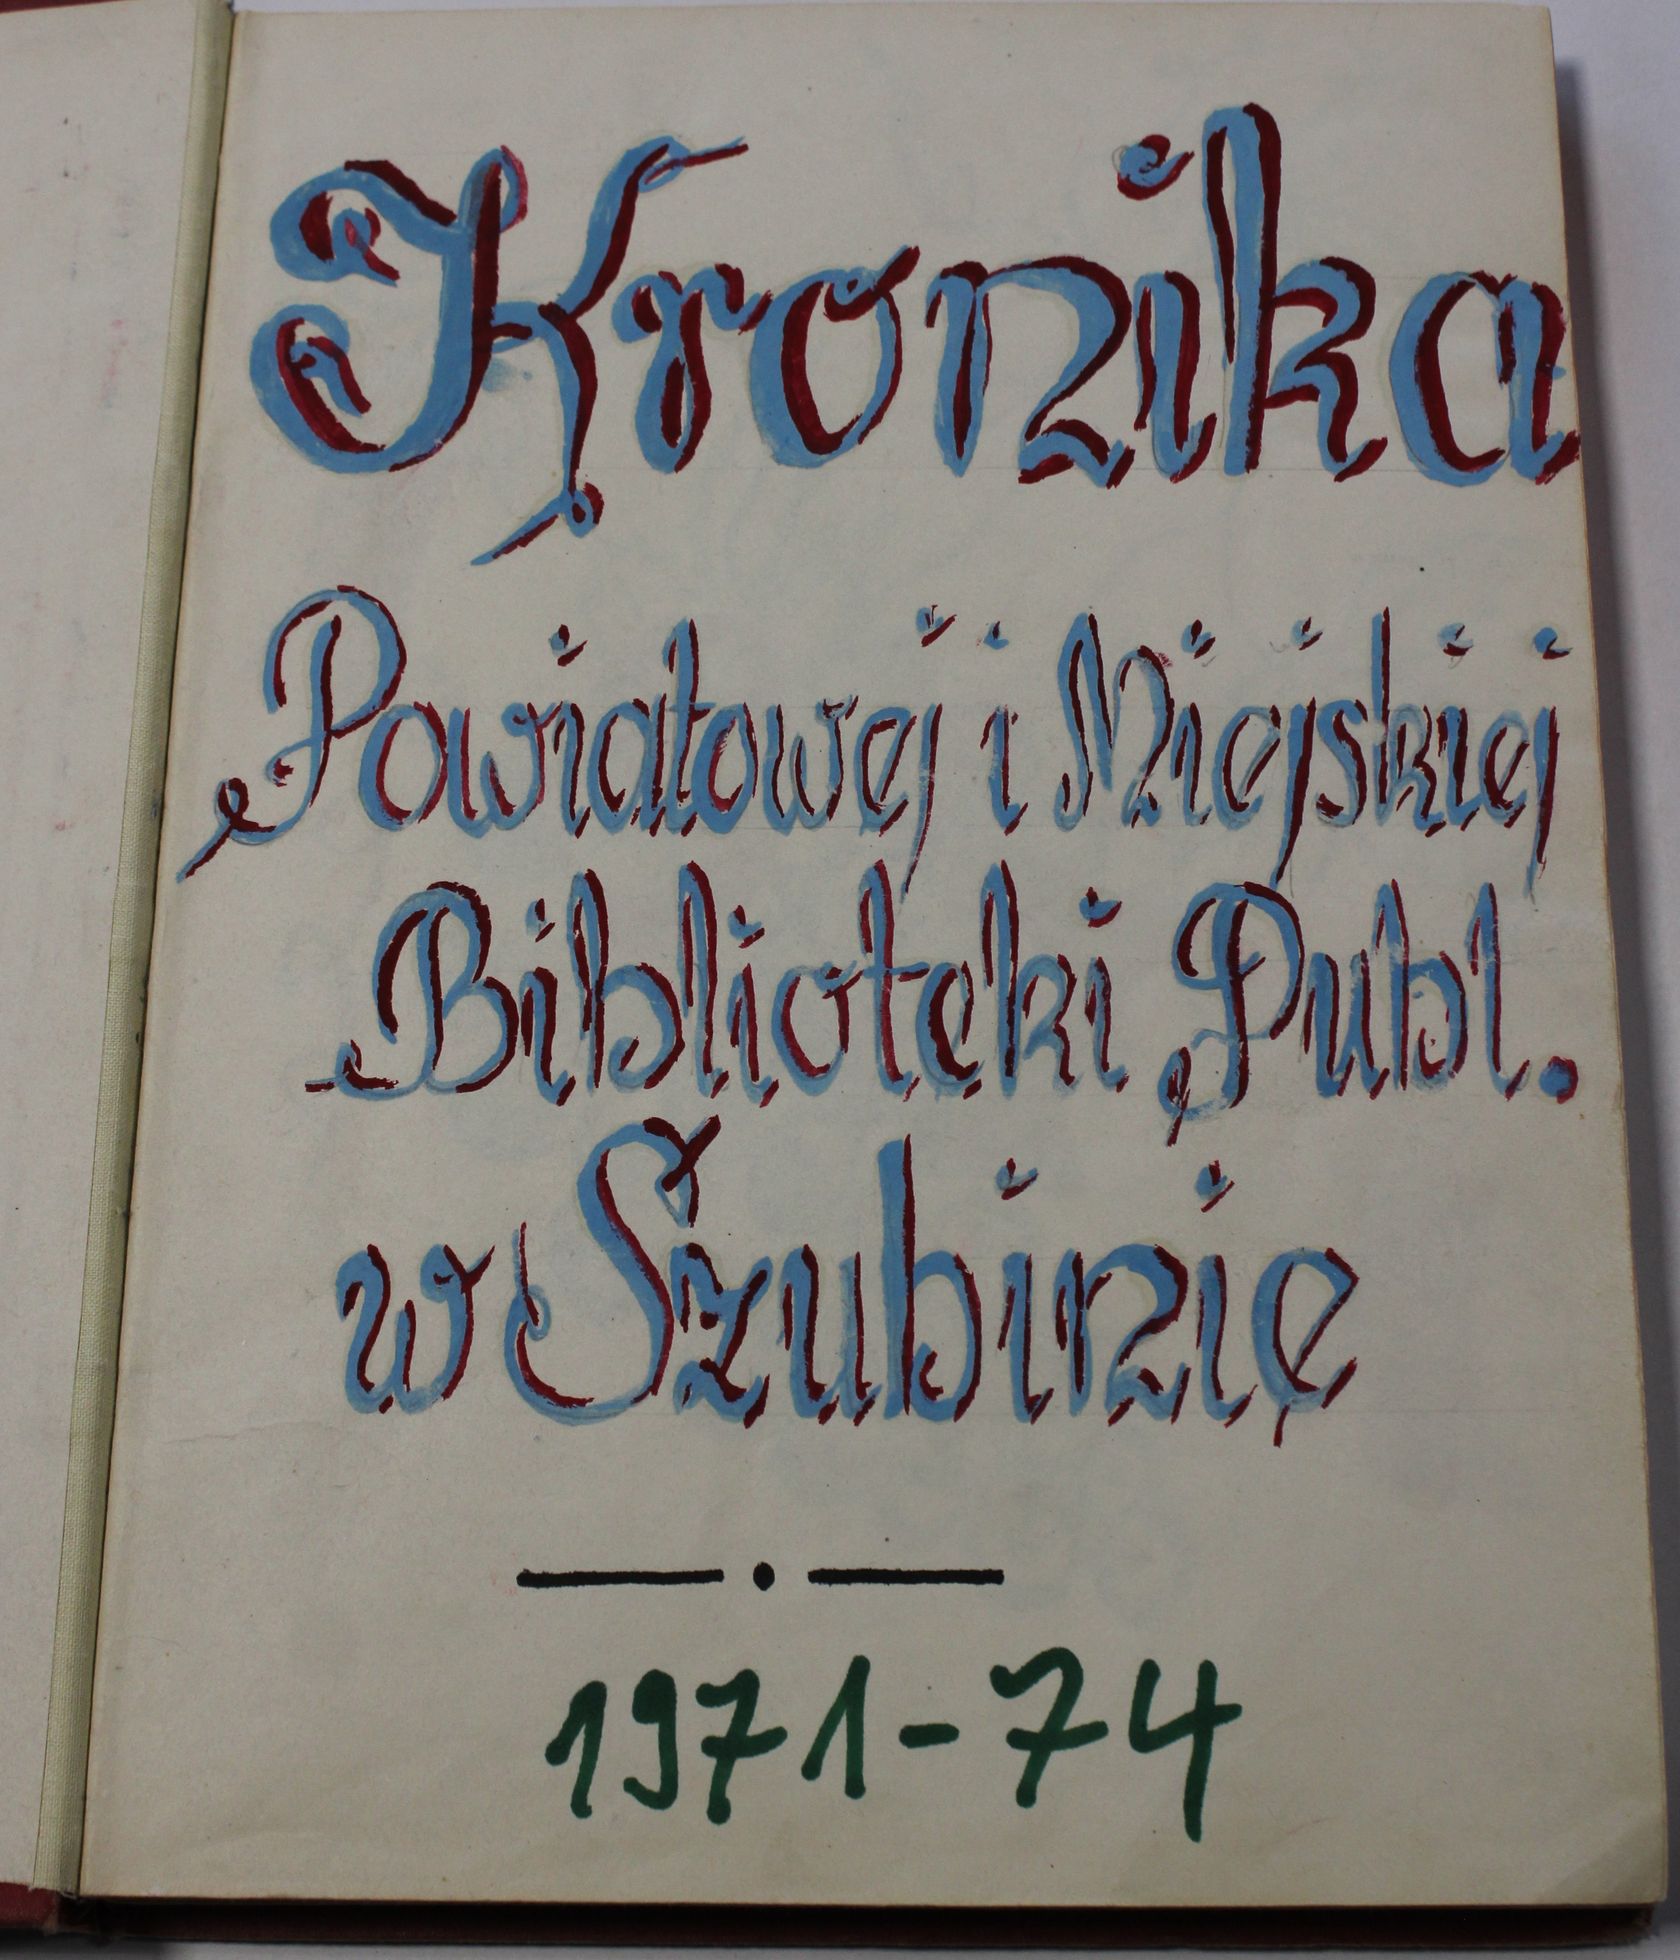 Kronika
Powiatowej i Miejskiej
Biblioteki Publ.
w Szubinie
1971-74